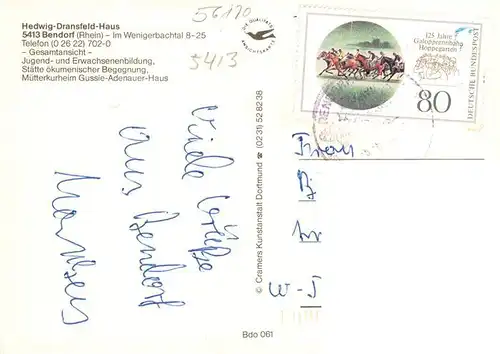 Hedwig-Dransfeld-Haus
5413 Bendorf (Rhein) – Im Wenigerbachtal 8-25
Telefon (0 26 22) 702-0
– Gesamtansicht –
Jugend- und Erwachsenenbildung,
Stätte ökumenischer Begegnung,
Mütterkurheim Gussie-Adenauer-Haus
56170
5413
DIE QUALITÄTS
ANSICHTSKARTE
125 Jahre
Galopprennbahn
Hoppegarten
80
DEUTSCHE BUNDESPOST
Viele Grüße
aus Bendorf
© Cramers Kunstanstalt Dortmund ☎ (0231) 52 82 38
Frau
W-J
Bdo 061